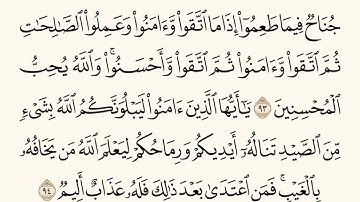 جُنَاحٌ فِيمَا طَعِمُوٓا۟ إِذَا مَا ٱتَّقَوا۟ وَّءَامَنُوا۟ وَعَمِلُوا۟ ٱلصَّـٰلِحَـٰتِ
ثُمَّ ٱتَّقَوا۟ وَّءَامَنُوا۟ ثُمَّ ٱتَّقَوا۟ وَّأَحْسَنُوا۟ ۗ وَٱللَّهُ يُحِبُّ
ٱلْمُحْسِنِينَ ٩٣ يَـٰٓأَيُّهَا ٱلَّذِينَ ءَامَنُوا۟ لَيَبْلُوَنَّكُمُ ٱللَّهُ بِشَىْءٍ
مِّنَ ٱلصَّيْدِ تَنَالُهُۥٓ أَيْدِيكُمْ وَرِمَاحُكُمْ لِيَعْلَمَ ٱللَّهُ مَن يَخَافُهُۥ
بِٱلْغَيْبِ ۚ فَمَنِ ٱعْتَدَىٰ بَعْدَ ذَٰلِكَ فَلَهُۥ عَذَابٌ أَلِيمٌ ٩٤